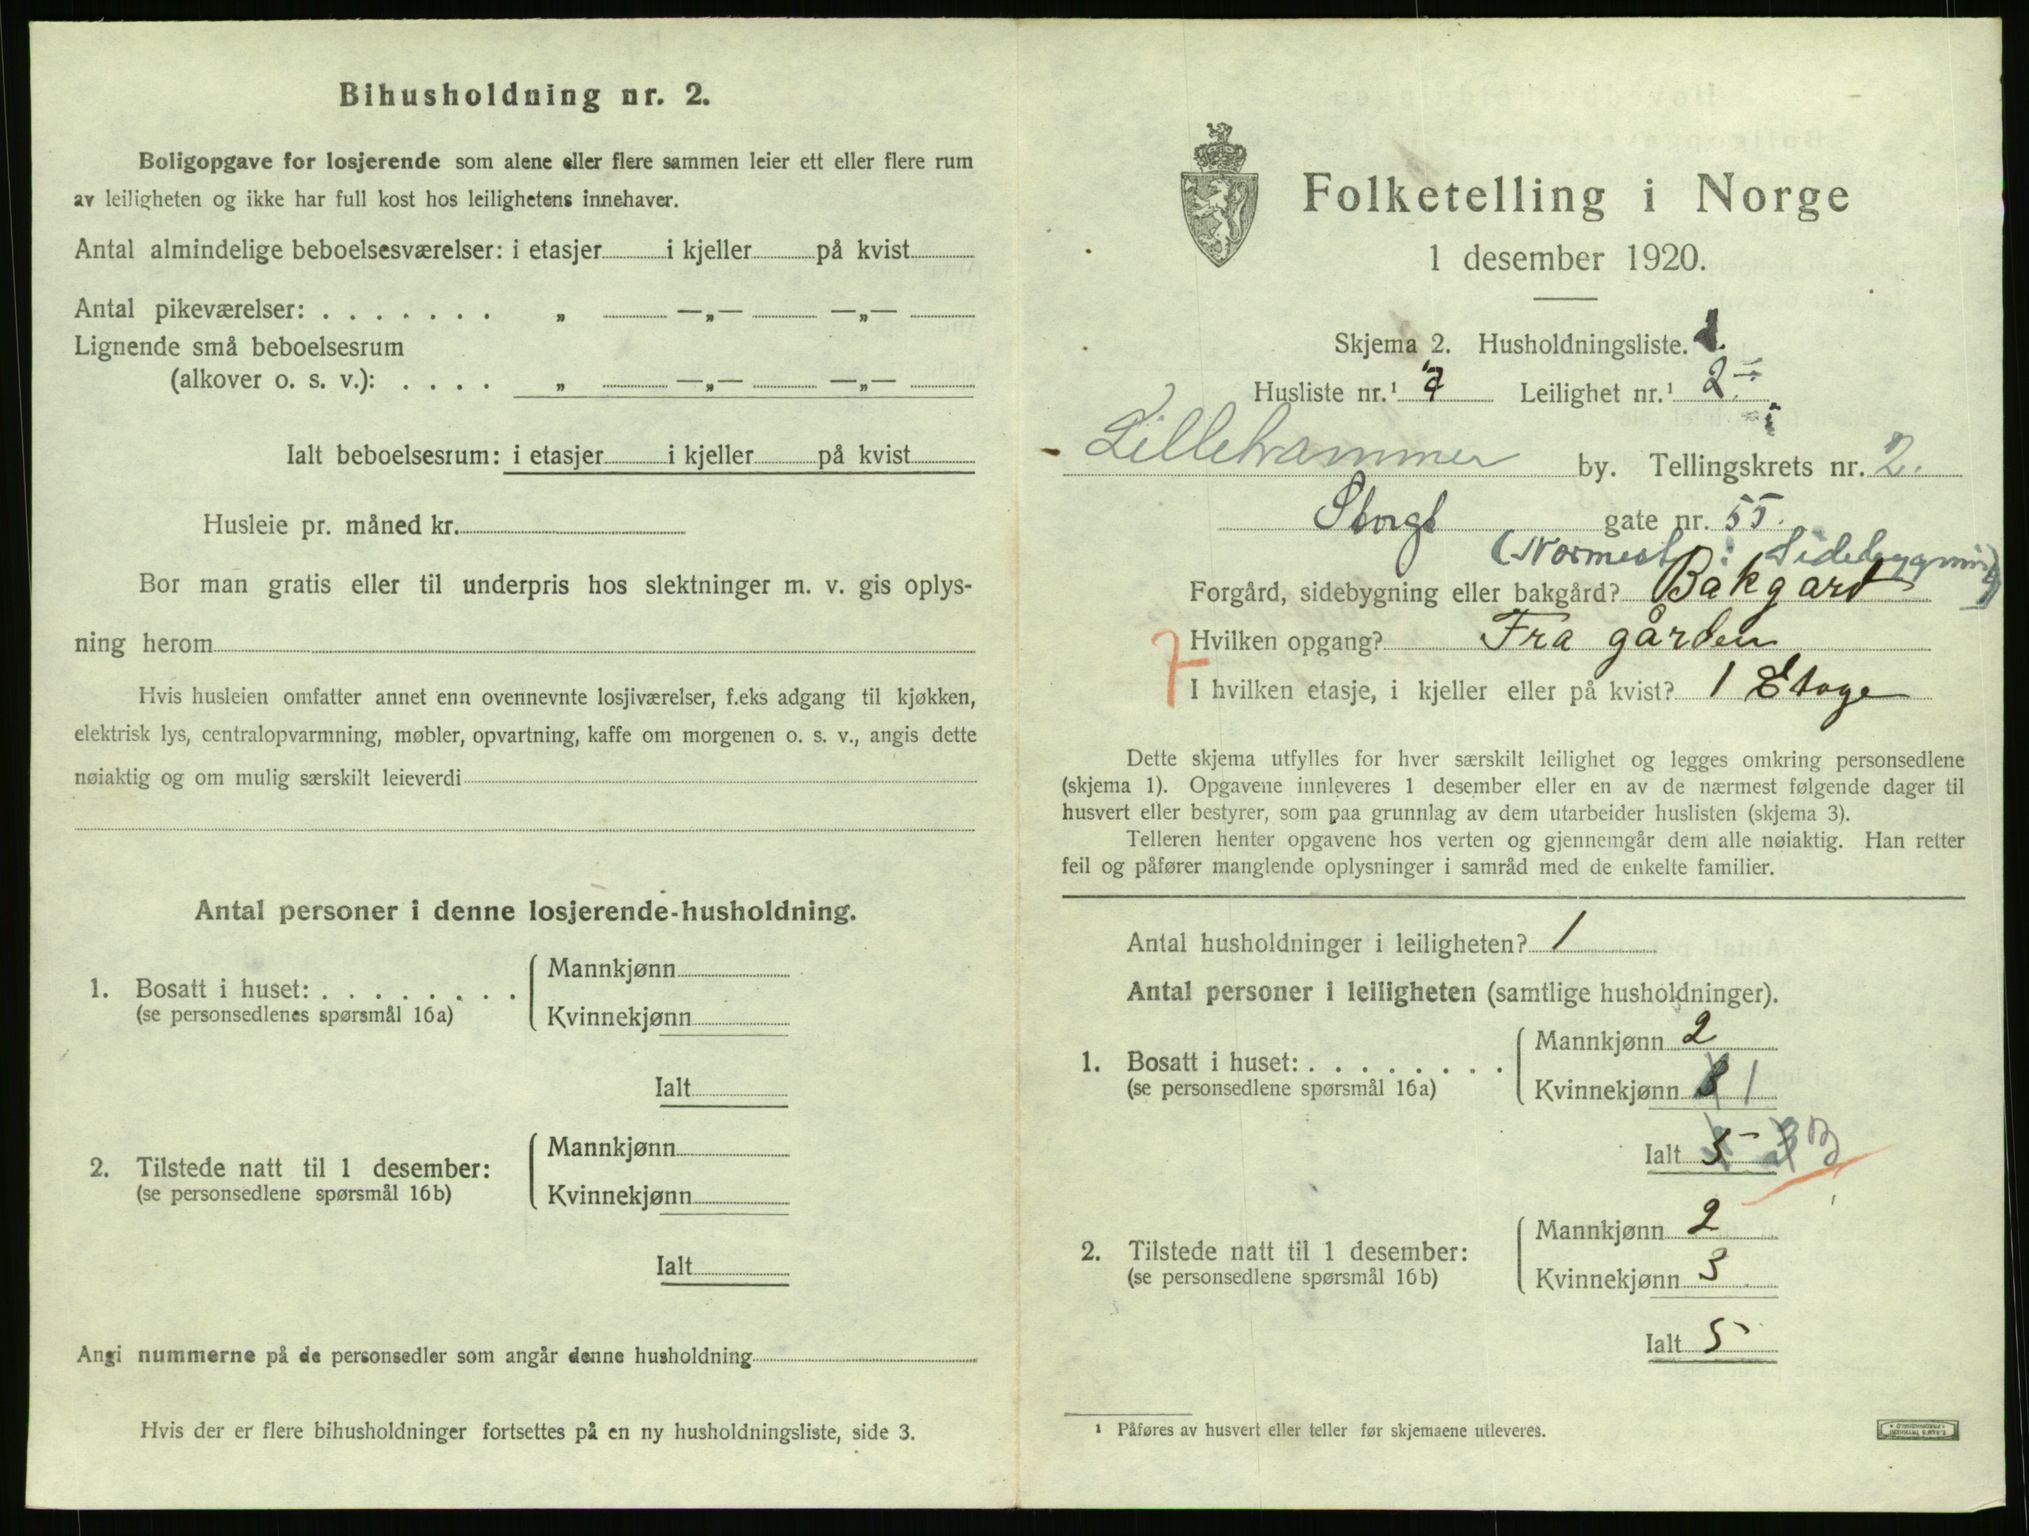 Bihusholdning nr. 2.
Boligopgave for losjerende som alene eller flere sammen leier ett eller flere rum
av leiligheten og ikke har full kost hos leilighetens innehaver.
Antal almindelige beboelsesværelser: i etasjer i kjeller på kvist
Antal pikeværelser: . . . . . . . „ —„— —„—
Lignende små beboelsesrum
(alkover o. s. v.): . . . . „ —„— —„—
Ialt beboelsesrum: i etasjer i kjeller på kvist
Husleie pr. måned kr.
Bor man gratis eller til underpris hos slektninger m. v. gis oplys-
ning herom
Hvis husleien omfatter annet enn ovennevnte losjiværelser, f.eks adgang til kjøkken,
elektrisk lys, centralopvarmning, møbler, opvartning, kaffe om morgenen o. s. v., angis dette
nøiaktig og om mulig særskilt leieverdi
Antal personer i denne losjerende-husholdning.
1. Bosatt i huset: . . . . . . . . Mannkjønn
(se personsedlenes spørsmål 16a) Kvinnekjønn
Ialt
2. Tilstede natt til 1 desember: Mannkjønn
(se personsedlene spørsmål 16b) Kvinnekjønn
Ialt
Angi nummerne på de personsedler som angår denne husholdning
Hvis der er flere bihusholdninger fortsettes på en ny husholdningsliste, side 3.
Folketelling i Norge
1 desember 1920.
Skjema 2. Husholdningsliste.
Husliste nr.¹ 7 Leilighet nr.¹ 2
Lillehammer by. Tellingskrets nr. 2.
Storgt gate nr. 55.
(Normest: Sidebygning)
Forgård, sidebygning eller bakgård? Bakgard
Hvilken opgang? Fra gården
7
I hvilken etasje, i kjeller eller på kvist? 1 Etage
Dette skjema utfylles for hver særskilt leilighet og legges omkring personsedlene
(skjema 1). Opgavene innleveres 1 desember eller en av de nærmest følgende dager til
husvert eller bestyrer, som paa grunnlag av dem utarbeider huslisten (skjema 3).
Telleren henter opgavene hos verten og gjennemgår dem alle nøiaktig. Han retter
feil og påfører manglende oplysninger i samråd med de enkelte familier.
Antal husholdninger i leiligheten? 1
Antal personer i leiligheten (samtlige husholdninger).
1. Bosatt i huset: . . . . . . . . Mannkjønn 2
(se personsedlene spørsmål 16a) Kvinnekjønn 3 1
Ialt 5 3
2. Tilstede natt til 1 desember: Mannkjønn 2
(se personsedlene spørsmål 16b) Kvinnekjønn 3
Ialt 5
¹ Påføres av husvert eller teller før skjemaene utleveres.